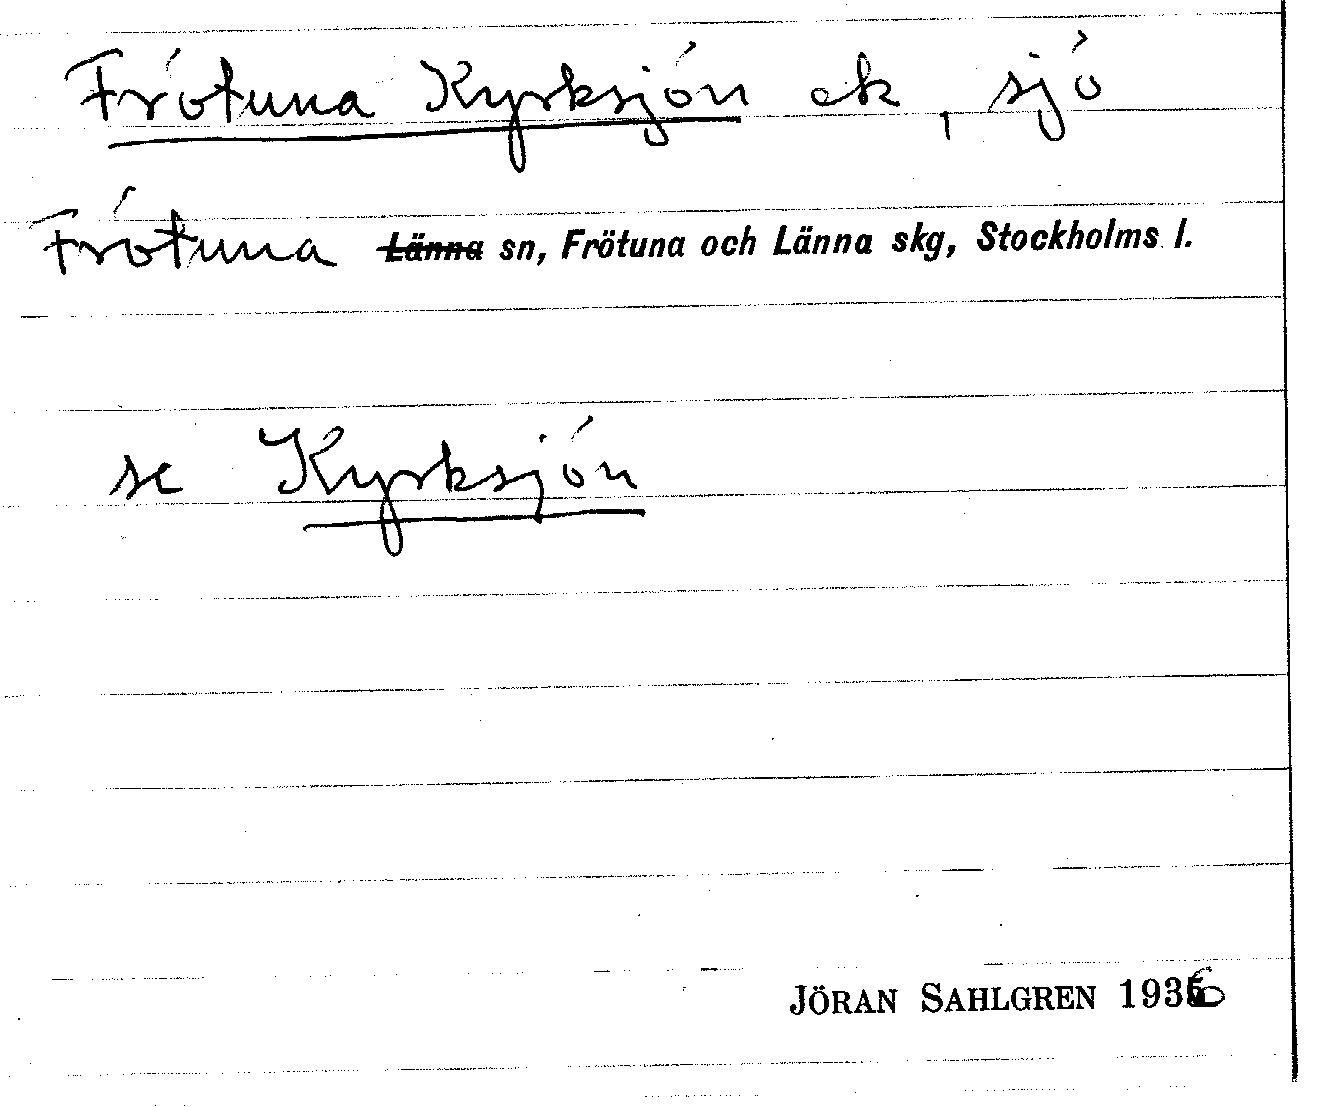 Frötuna Kyrksjön ek, sjö
Frötuna Länna sn, Frötuna och Länna skg, Stockholms l.
se Kyrksjön
JÖRAN SAHLGREN 1936